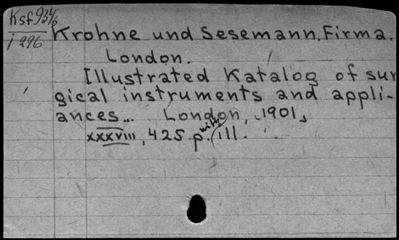 Ksf 93%
I 296
Krohne und Sesemann, Firma.
London.
Illustrated Katalog of sur
gical instruments and appli-
ances... London, 1901,
xxxviii, 425 p. with ill.